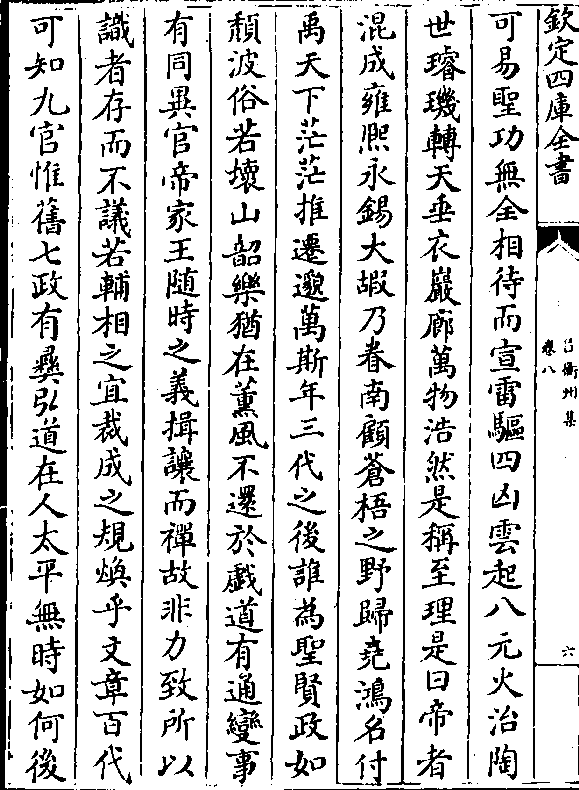 欽定四庫全書
呂衡州集
卷八
六
可易聖功無全相待而宣雷驅四凶雲起八元火冶陶
世璿璣轉天垂衣巖廊萬物浩然是稱至理是曰帝者
混成雍熙永錫大嘏乃眷南顧蒼梧之野歸堯鴻名付
禹天下茫茫推遷邈萬斯年三代之後誰為聖賢政如
頹波俗若壞山韶樂猶在薰風不還於戲道有通變事
有同異官帝家王隨時之義揖讓而禪故非力致所以
識者存而不議若輔相之宜裁成之規煥乎文章百代
可知九官惟舊七政有彝弘道在人太平無時如何後